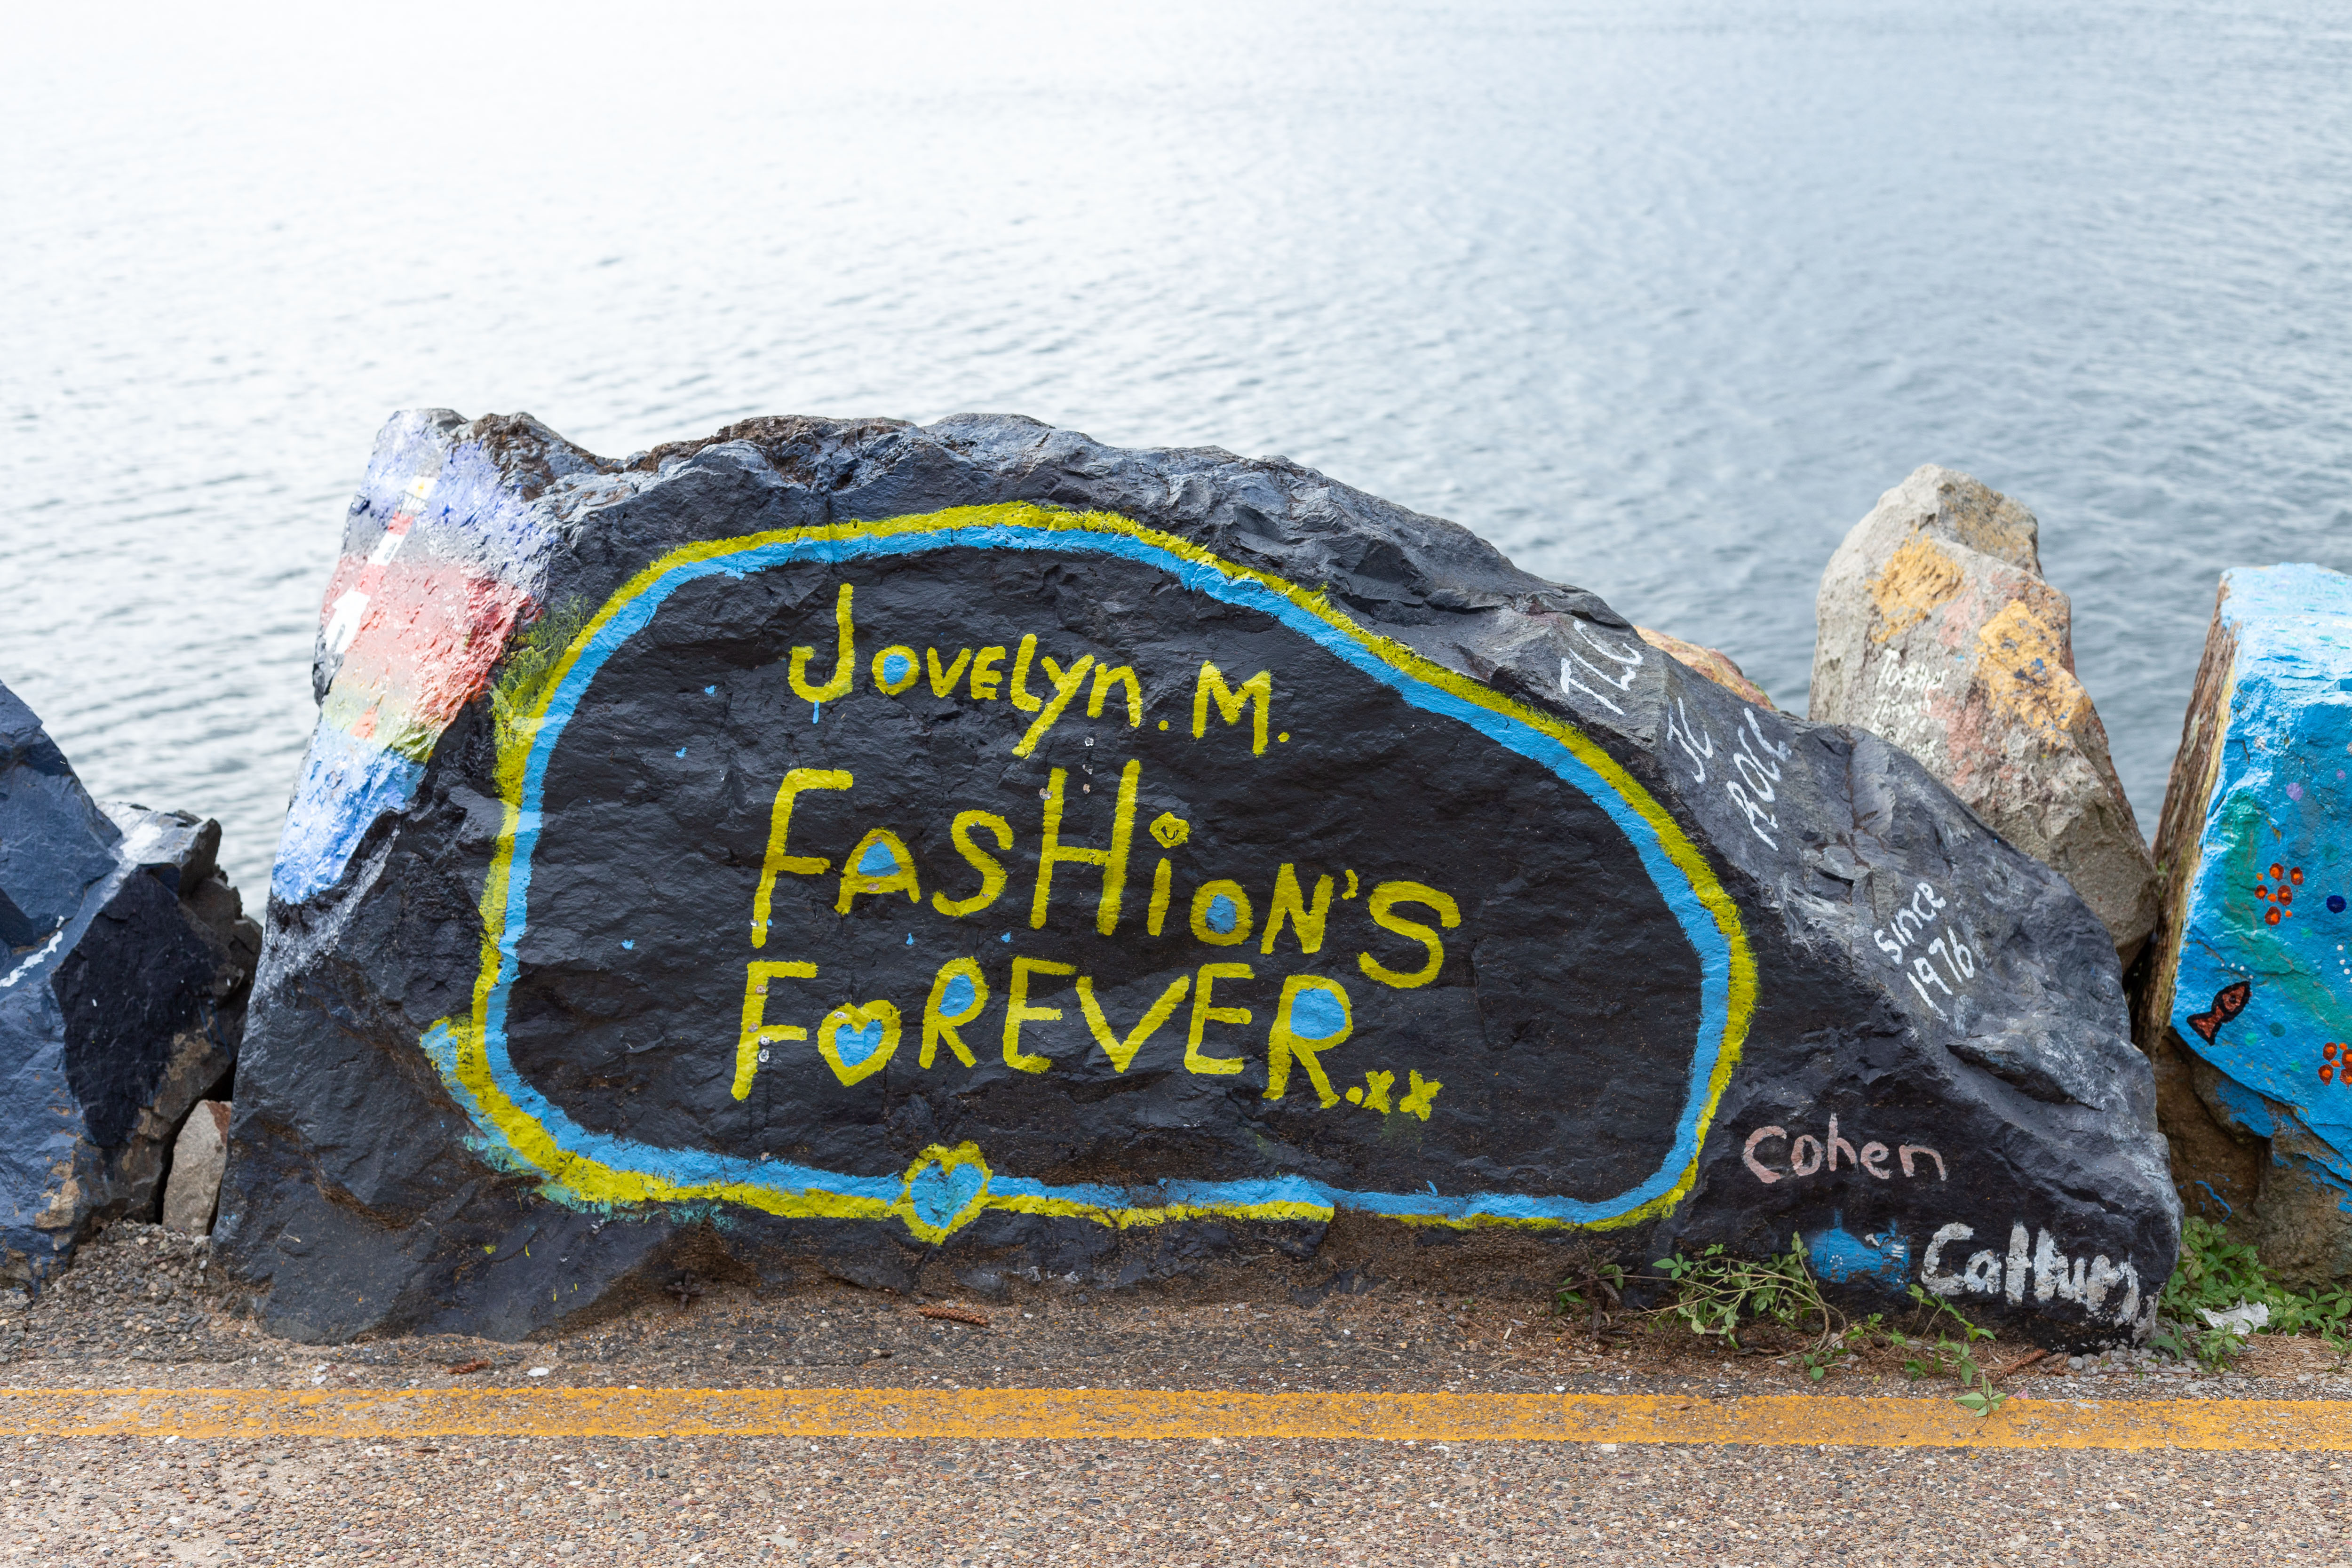 Jovelyn.M.
FasHion's
Forever.xx
TLC
JZ
ROCC
since
1976
Cohen
Cattum
Together